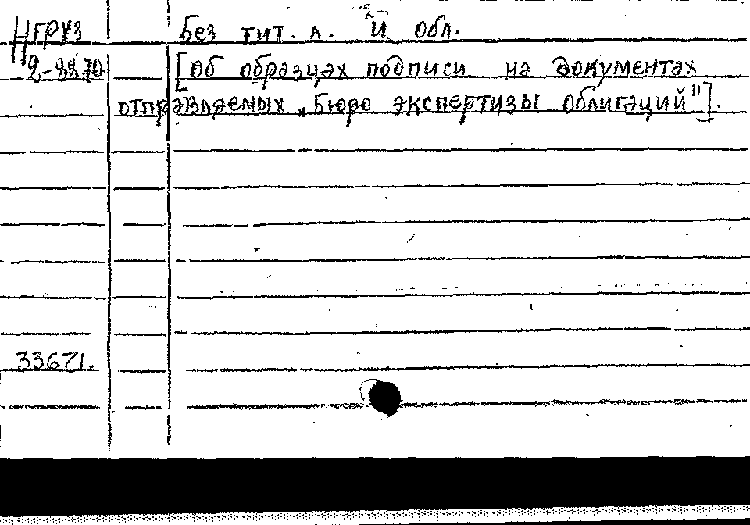 НГРУЗ Без тит. л. и обл.
2-8870 [Об образцах подписи на документах
отправляемых „Бюро экспертизы облигаций"].
33671.